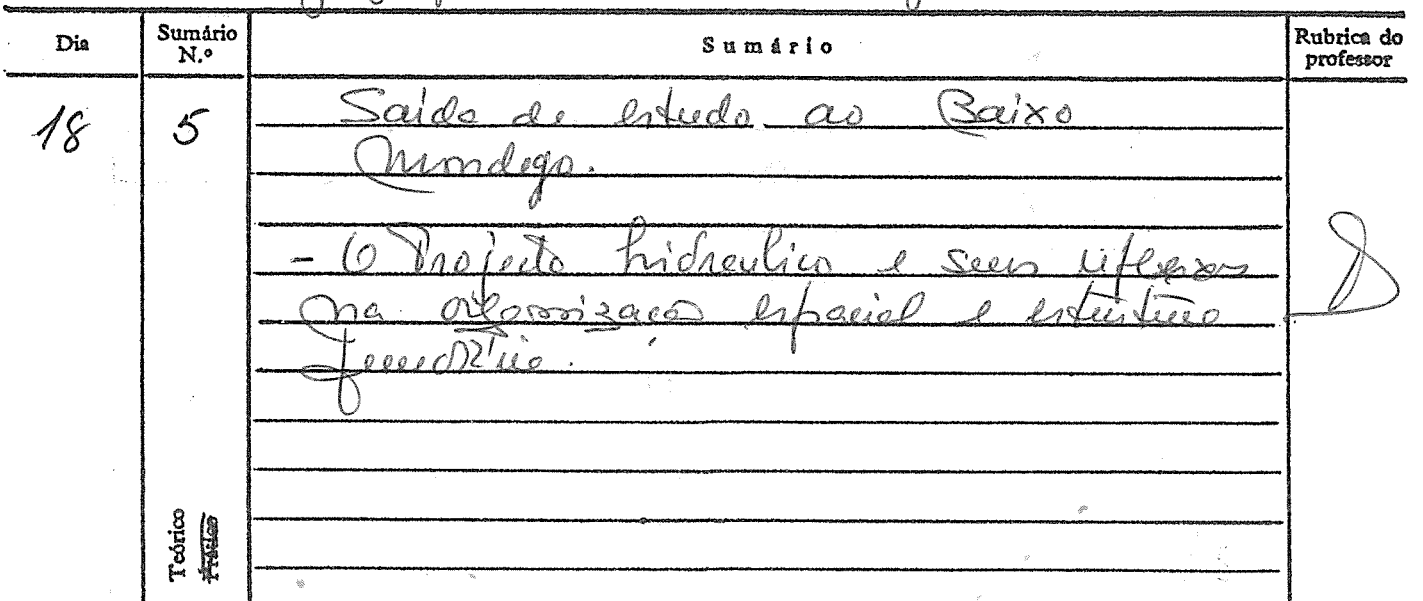 Dia Sumário N.º Sumário Rubrica do professor
18 5 Saída de estudo ao Baixo
Mondego.
- O Projecto hidraulico e seus reflexos
na organização espacial e estrutura
fundiária.
Teórico
Prático